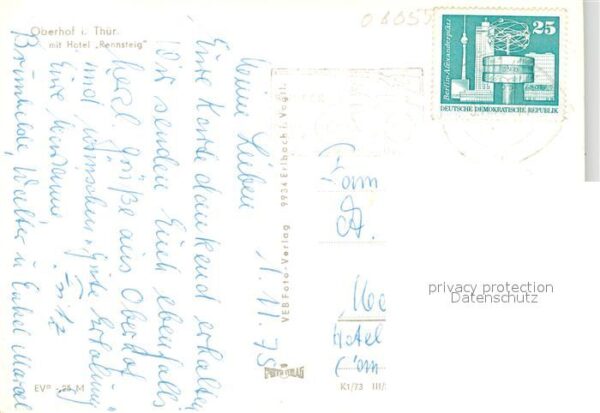 Oberhof i. Thür.
mit Hotel „Rennsteig"
1.11.75
Meine Lieben
Eure Karte dankend erhalten
Wir senden Euch ebenfalls
Grüße aus Oberhof
und wünschen gute Erholung
Eure
Fritz
Brünhilde, Walter u Enkel Marcel
EVP -,25 M
VEB Foto-Verlag 9934 Erlbach i. Vogtl.
K1/73 III/
Fam
A.
Hotel
25
Berlin-Alexanderplatz
DEUTSCHE DEMOKRATISCHE REPUBLIK
privacy protection
Datenschutz